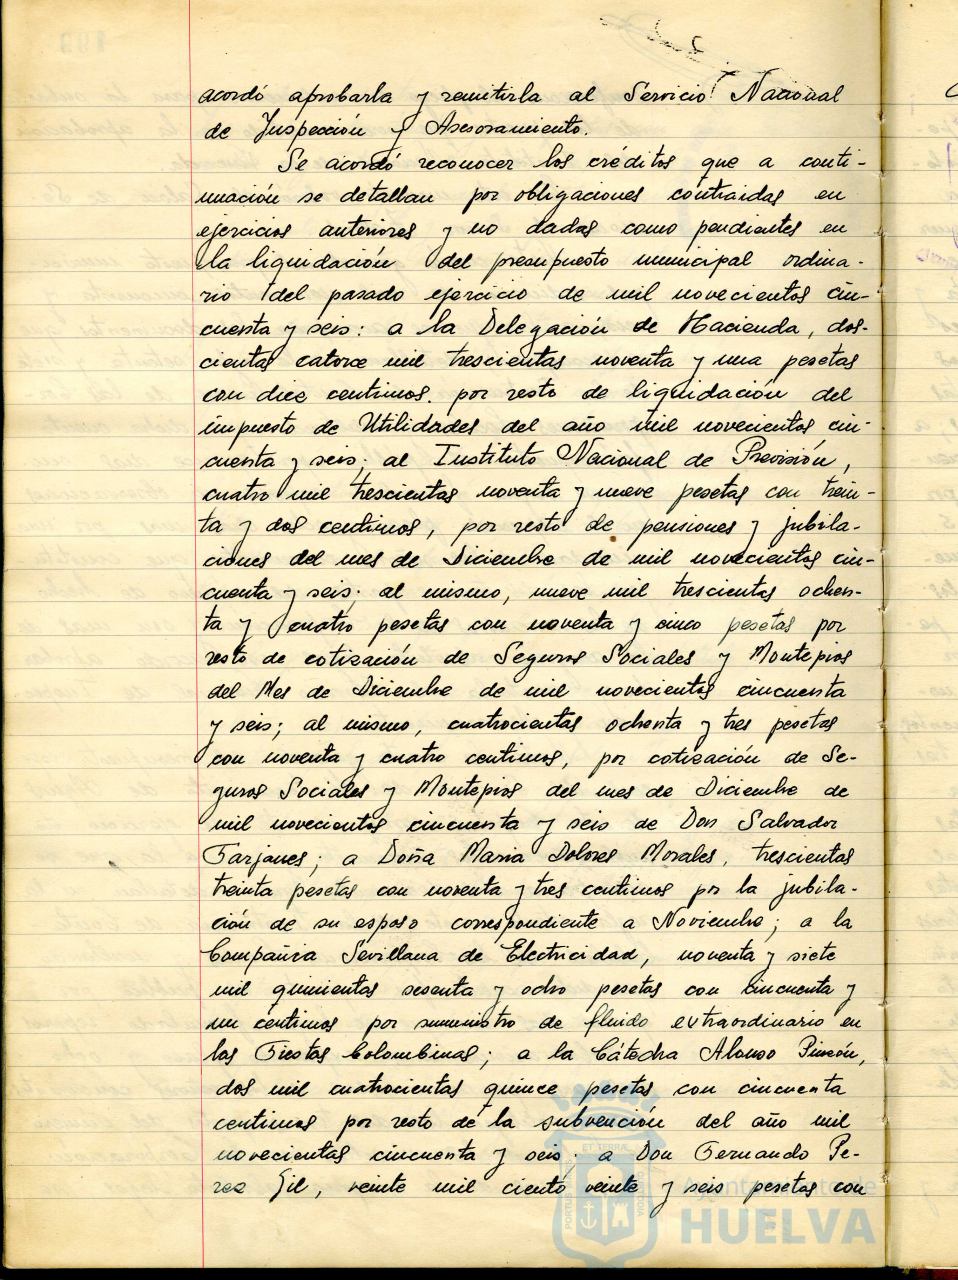 acordó aprobarla y remitirla al Servicio Nacional
de Inspección y Asesoramiento.
Se acordó reconocer los créditos que a conti-
nuación se detallan por obligaciones contraidas en
ejercicios anteriores y no dadas como pendientes en
la liquidación del presupuesto municipal ordina-
rio del pasado ejercicio de mil novecientos cin-
cuenta y seis: a la Delegación de Hacienda, dos-
cientas catorce mil trescientas noventa y una pesetas
con diez centimos. por resto de liquidación del
impuesto de Utilidades del año mil novecientos cin-
cuenta y seis; al Instituto Nacional de Previsión,
cuatro mil trescientas noventa y nueve pesetas con trein-
ta y dos centimos, por resto de pensiones y jubila-
ciones del mes de Diciembre de mil novecientos cin-
cuenta y seis; al mismo, nueve mil trescientas ochen-
ta y cuatro pesetas con noventa y cinco pesetas por
resto de cotización de Seguros Sociales y Montepios
del Mes de Diciembre de mil novecientos cincuenta
y seis; al mismo, cuatrocientas ochenta y tres pesetas
con noventa y cuatro centimos, por cotización de Se-
guros Sociales y Montepios del mes de Diciembre de
mil novecientos cincuenta y seis de Don Salvador
Farjanes; a Doña Maria Dolores Morales, trescientas
treinta pesetas con noventa y tres centimos por la jubila-
ción de su esposo correspondiente a Noviembre; a la
Compañia Sevillana de Electricidad, noventa y siete
mil quinientas sesenta y ocho pesetas con cincuenta y
un centimos por suministro de fluido extraordinario en
las Fiestas Colombinas; a la Cátedra Alonso Pinzón,
dos mil cuatrocientas quince pesetas con cincuenta
centimos por resto de la subvención del año mil
novecientos cincuenta y seis; a Don Fernando Pe-
rez Gil, veinte mil ciento veinte y seis pesetas con
Ayuntamiento de
HUELVA